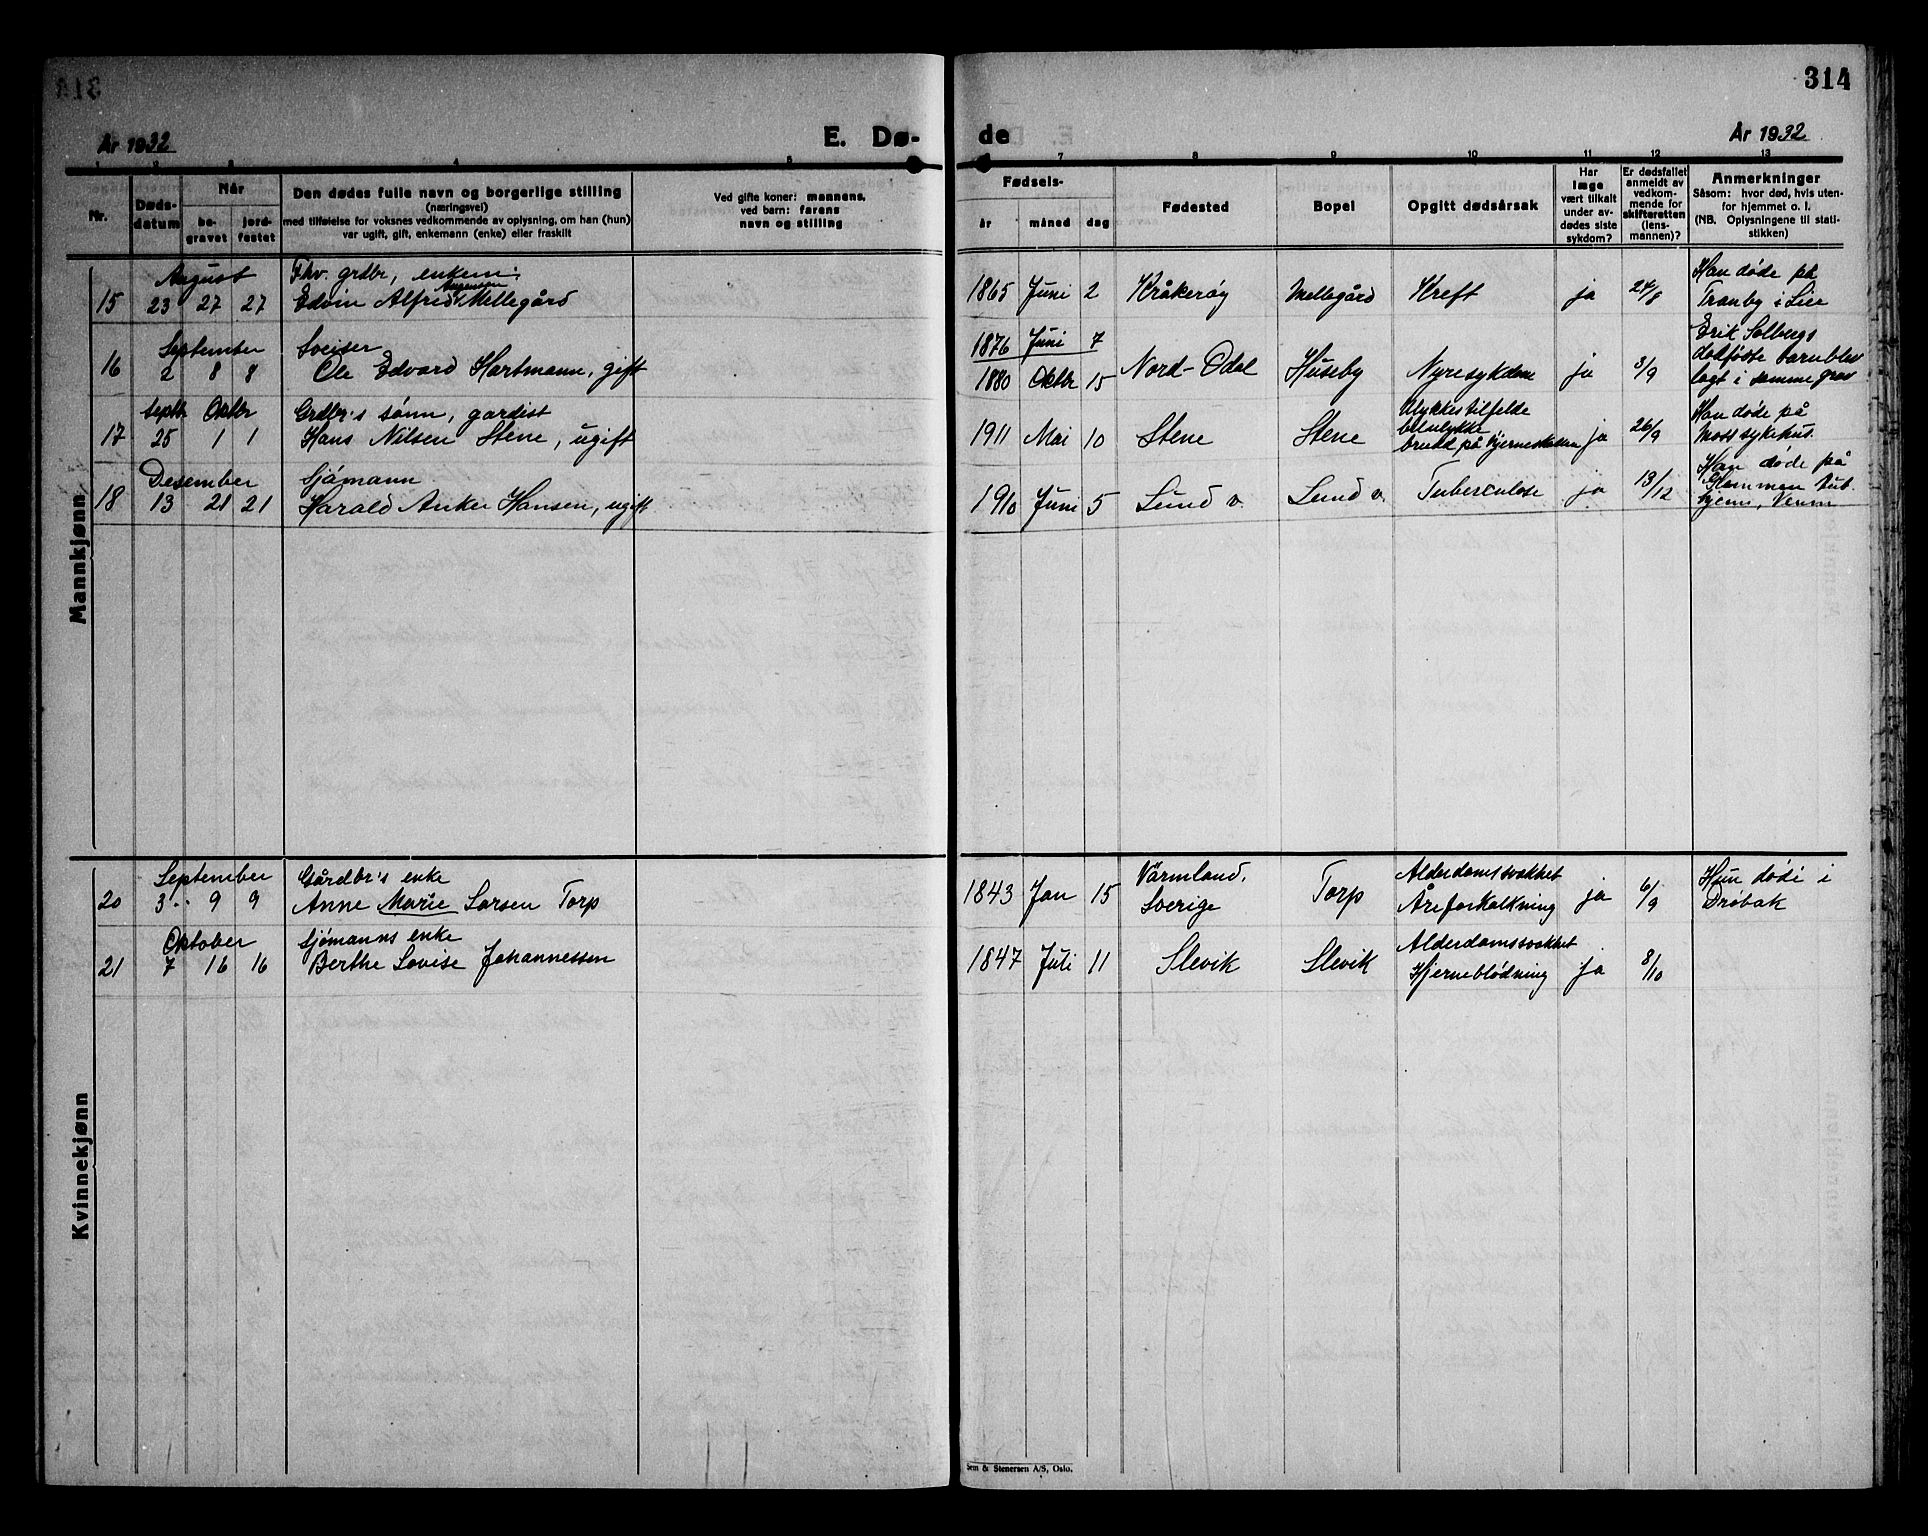 314
År 1932
E. Dø-
de
År 1932
1 2 3 4 5
7 8 9 10 11 12 13
Nr.
Døds-
datum
Når
be-
gravet
jord-
festet
Den dødes fulle navn og borgerlige stilling
(næringsvei)
med tilføielse for voksnes vedkommende av oplysning, om han (hun)
var ugift, gift, enkemann (enke) eller fraskilt
Ved gifte koner: mannens,
ved barn: farens
navn og stilling
Fødsels-
år måned dag
Fødested
Bopel
Opgitt dødsårsak
Har
læge
vært tilkalt
under av-
dødes siste
sykdom?
Er dødsfallet
anmeldt av
vedkom-
mende for
skifteretten
(lens-
mannen)?
Anmerkninger
Såsom: hvor død, hvis uten-
for hjemmet o. l.
(NB. Oplysningene til stati-
stikken)
Mannkjønn
August Fhv. grdbr, enkem.
15 23 27 27 Edvin Alfred Mellegård
1865 Juni 2 Kråkerøy Mellegård Kreft ja 24/8
Han døde på
Tranby i Lier
September Sveiser
16 2 8 8 Ole Edvard Hartmann, gift
1876 Juni 7
1880 Oktbr 15 Nord-Odal Huseby Nyresykdom ja 3/9
Erik Solbergs
dødføste barn blev
lagt i samme grav
Septbr Oktbr Grdbr's sønn, gardist
17 25 1 1 Hans Nilsen Stene, ugift
1911 Mai 10 Stene Stene
Ulykkestilfelde
bilulykke
brudd på hjerneskallen ja 26/9
Han døde på
Moss sykehus.
Desember Sjømann
18 13 21 21 Harald Anker Hansen, ugift
1910 Juni 5 Lund v. Lund v. Tuberculose ja 13/12
Han døde på
Glommen tub.
hjem,
Kvinnekjønn
September Gårdbr's enke
20 3 9 9 Anne Marie Larsen Torp
1843 Jan 15
Värmland,
Sverige
Torp
Alderdomssvakhet
Åreforkalkning ja 6/9
Hun døde i
Drøbak
Oktober Sjømanns enke
21 7 16 16 Berthe Lovise Johannessen
1847 Juli 11 Slevik Slevik
Alderdomssvakhet
Hjerneblødning ja 8/10
Sem & Stenersen A/S, Oslo.